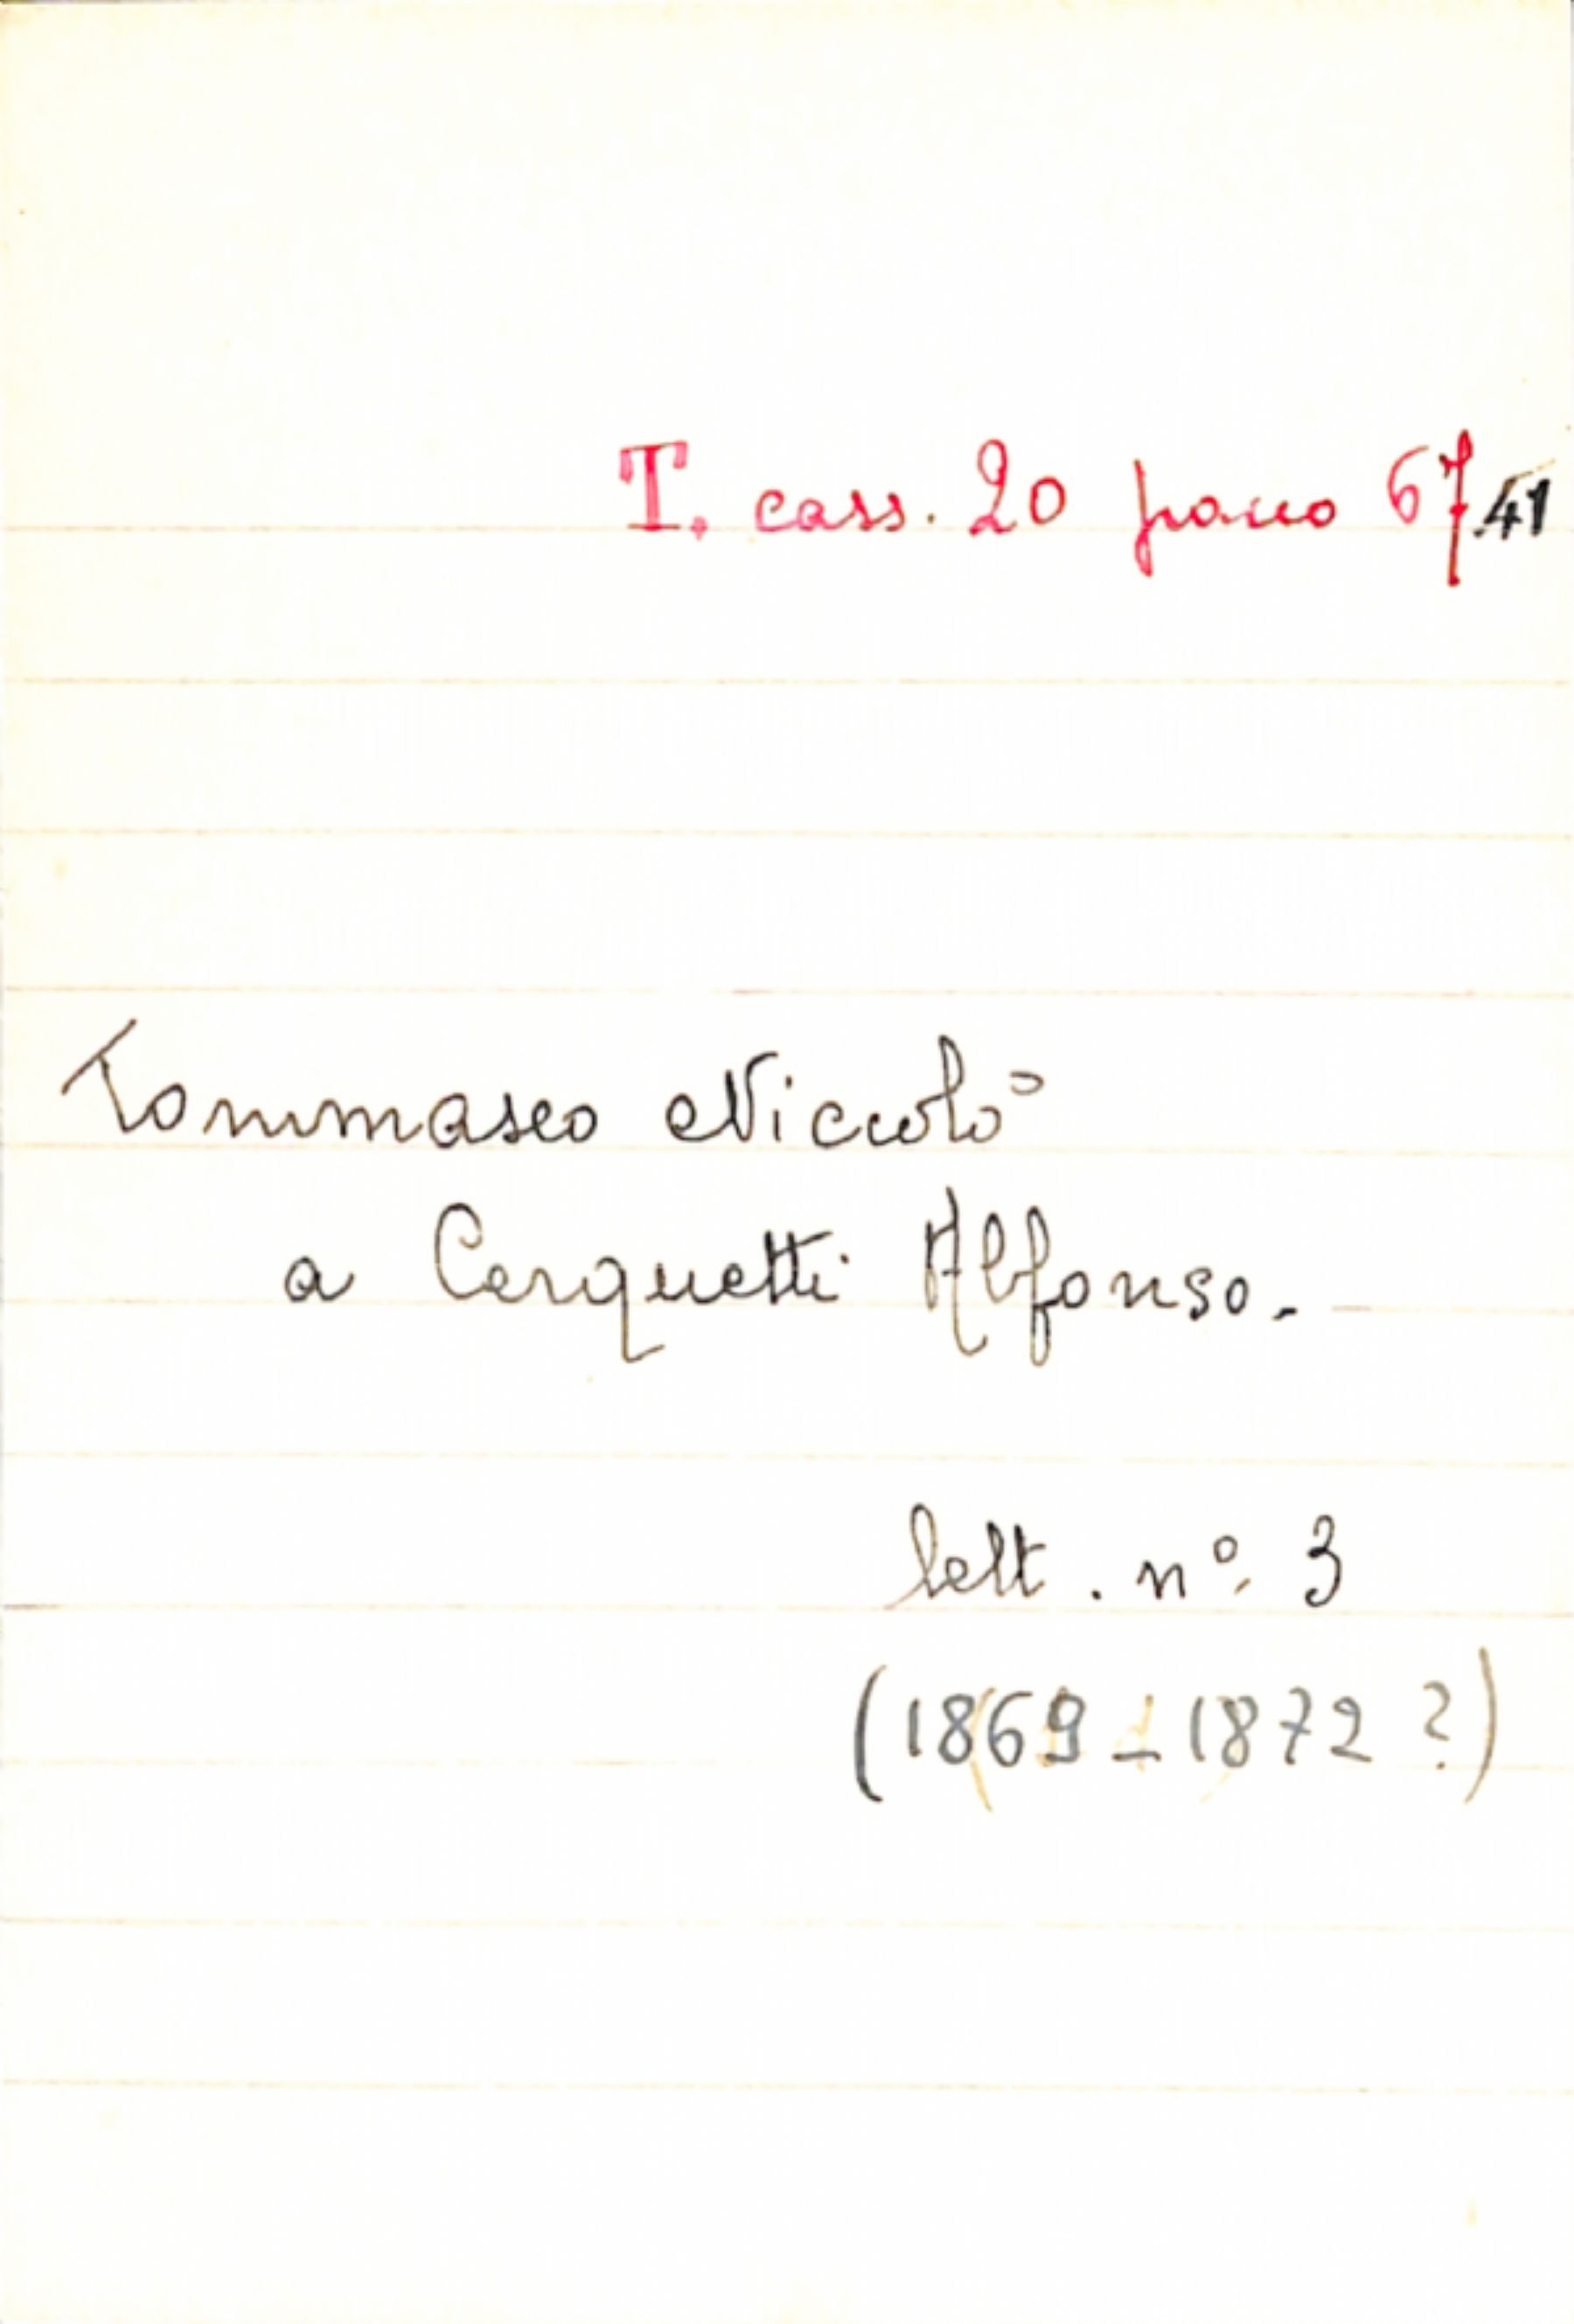 T. cass. 20 pacco 67.41
Tommaseo Niccolò
a Cerquetti Alfonso.
lett. n.º 3
(1869 - 1872 ?)